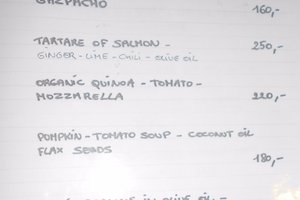 GAZPACHO 160,-
TARTARE OF SALMON - 250,-
GINGER - LIME - CHILI - OLIVE OIL
ORGANIC QUINOA - TOMATO -
MOZZARELLA 220,-
PUMPKIN - TOMATO SOUP - COCONUT OIL
FLAX SEEDS 180,-
IN OLIVE OIL -